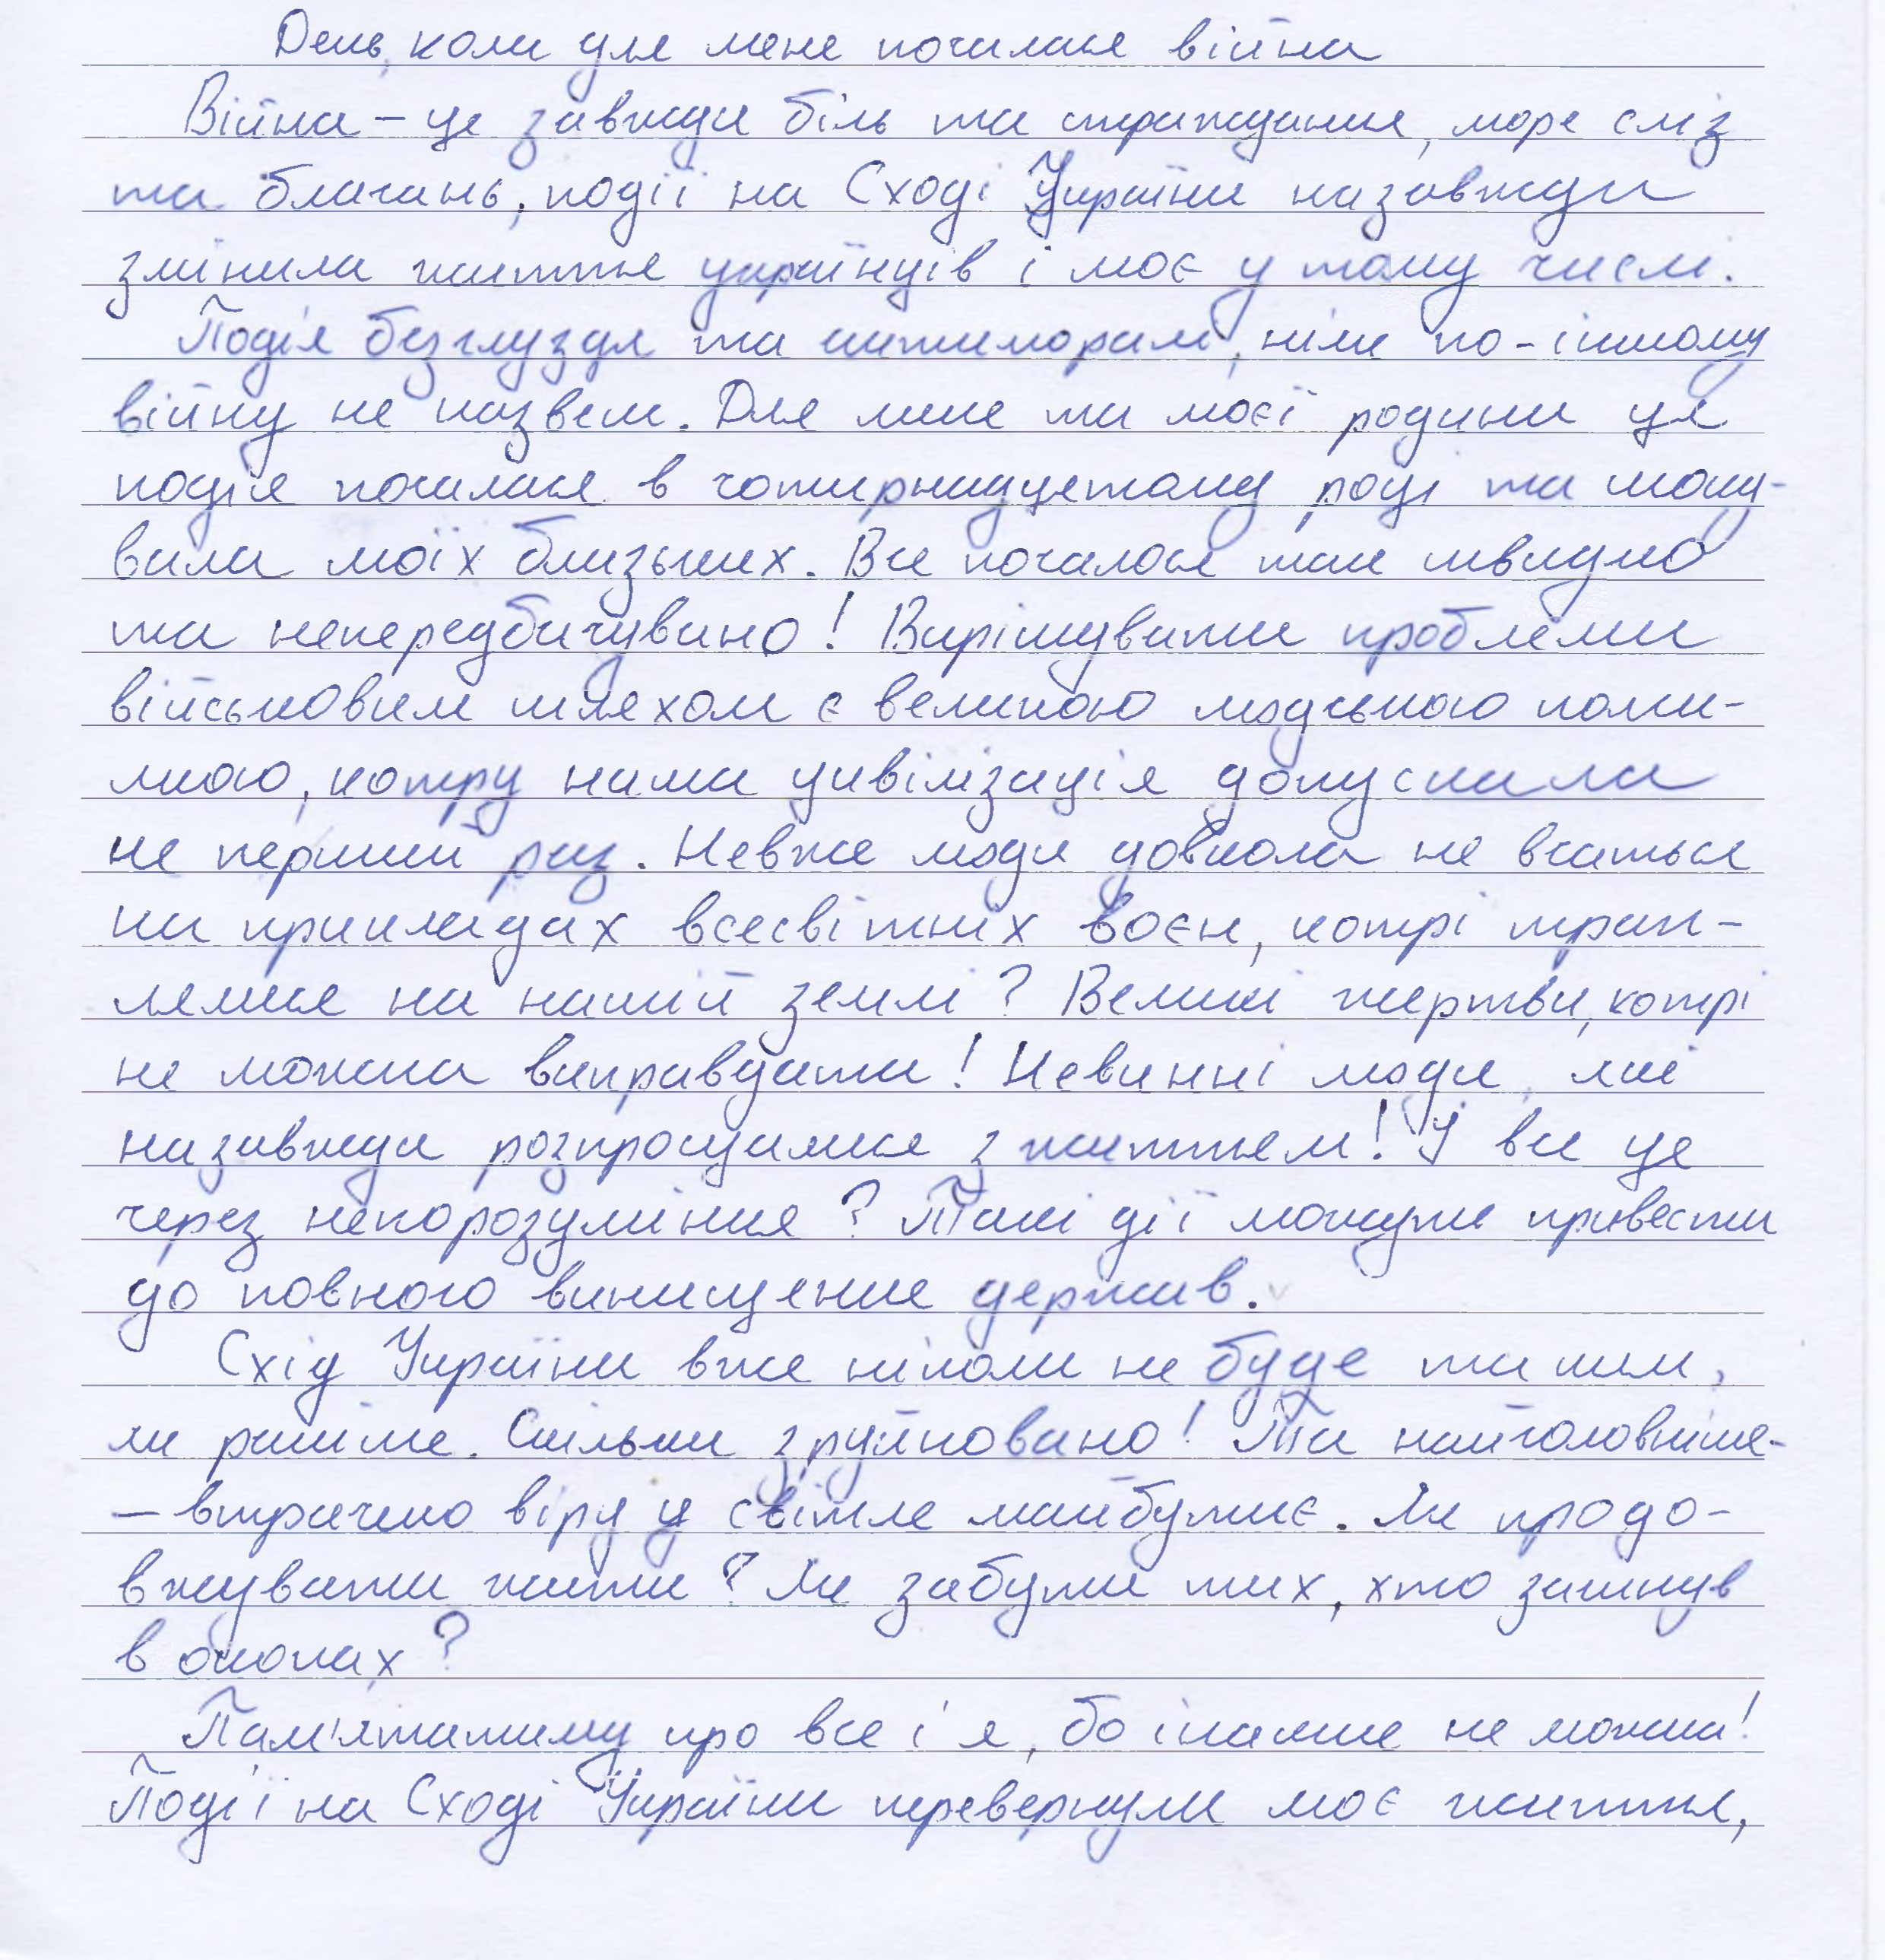 День, коли для мене почалася війна
Війна – це завжди біль та страждання, море сліз
та благань, події на Сході України назавжди
змінили життя українців і моє у тому числі.
Подія безглузда та антиморалі, ніяк по-іншому
війну не назвеш. Для мене та моєї родини ця
подія почалася в чотирнадцятому році та
вила моїх близьких. Все почалося так швидко
та непередбачувано! Вирішувати проблеми
військовим шляхом є великою людською поми-
лкою, котру наша цивілізація допускала
не перший раз. Невже люди довкола не вчаться
на прикладах всесвітніх воєн, котрі трап-
лялися на нашій землі? Великі жертви, котрі
не можна виправдати! Невинні люди, які
назавжди розпрощалися з життям! І все це
через непорозуміння? Такі дії можуть привести
до повного винищення держав.
Схід України вже ніколи не буде таким,
як раніше. Скільки зруйновано! Та найголовніше-
– втрачено віру у світле майбутнє. Як продо-
вжувати жити? Як забути тих, хто загинув
в окопах?
Пам'ятатиму про все і я, бо інакше не можна!
Події на Сході України перевернули моє життя,